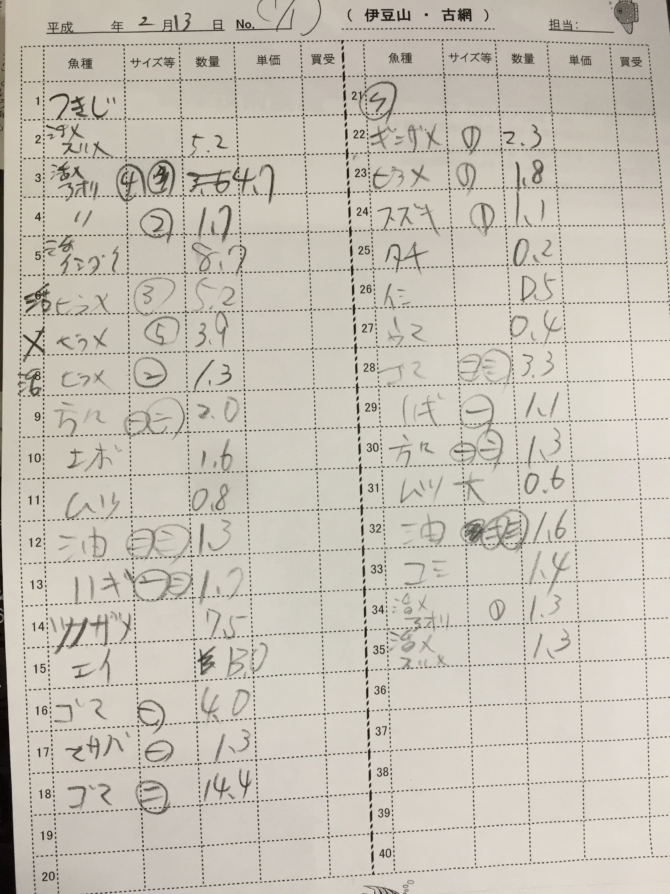 平成 年 2月13日 No. (1/1) ( 伊豆山 ・ 古網 ) 担当:
魚種 サイズ等 数量 単価 買受
1 つきじ
2 活〆スルメ 5.2
3 活〆アオリ ④ 4.7
4 〃 ② 1.7
5 活イシダイ 8.7
6 活 ヒラメ ③ 5.2
7 ヒラメ ⑤ 3.9
8 活 ヒラメ ㊀ 1.3
9 方々 ㊀㊁ 2.0
10 エボ 1.6
11 ムツ 0.8
12 三由 1.3
13 ハギ ㊀㊁ 1.7
14 ザメ 7.5
15 エイ 13.0
16 ゴマ 4.0
17 マサバ ㊀ 1.3
18 ゴマ ㊂ 14.4
19
20
魚種 サイズ等 数量 単価 買受
21
22 ギンザメ ① 2.3
23 ヒラメ ① 1.8
24 スズキ ① 1.1
25 タチ 0.2
26 0.5
27 ウマ 0.4
28 ゴマ 3.3
29 ハギ ㊀ 1.1
30 方々 ㊀㊁ 1.3
31 ムツ 大 0.6
32 三由 1.6
33 コミ 1.4
34 活〆アオリ ① 1.3
35 活〆スルメ 1.3
36
37
38
39
40